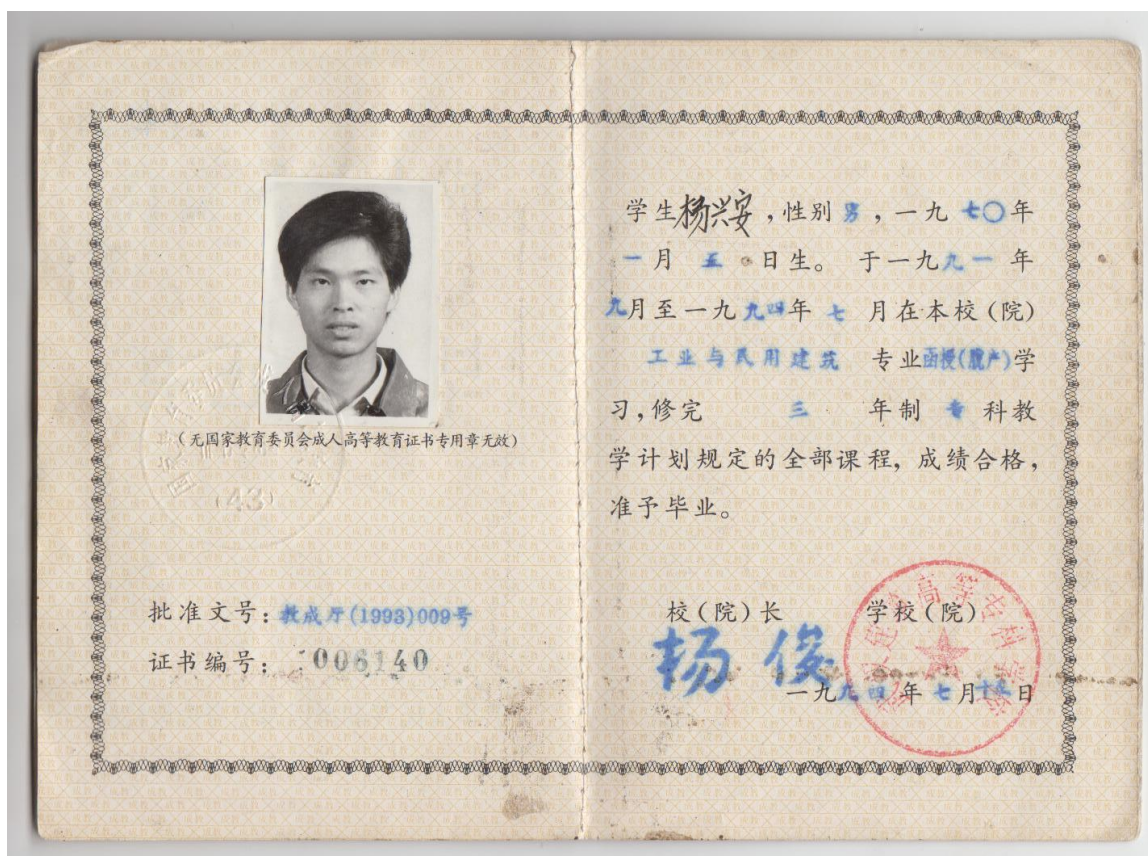 (无国家教育委员会成人高等教育证书专用章无效)
(43)
批准文号:教成厅(1993)009号
证书编号:006140
学生杨兴安,性别男,一九七〇年
一月五日生。于一九九一年
九月至一九九四年七月在本校(院)
工业与民用建筑专业函授(脱产)学
习,修完三年制专科教
学计划规定的全部课程,成绩合格,
准予毕业。
校(院)长 学校(院)
杨俊
一九九四年七月十五日
高等专科学校